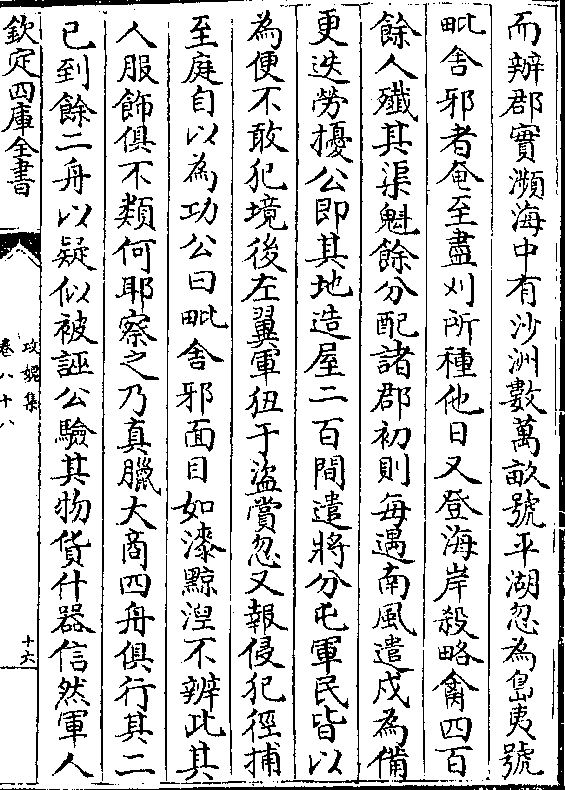 而辦郡實瀕海中有沙洲數萬畝號平湖忽為島夷號
毗舍邪者奄至盡刈所種他日又登海岸殺略禽四百
餘人殲其渠魁餘分配諸郡初則每遇南風遣戍為備
更迭勞擾公即其地造屋二百間遣將分屯軍民皆以
為便不敢犯境後左翼軍狃于盜賞忽又報侵犯徑捕
至庭自以為功公曰毗舍邪面目如漆黥湼不辨此其
人服飾俱不類何耶察之乃真臘大商四舟俱行其二
已到餘二舟以疑似被誣公驗其物貨什器信然軍人
欽定四庫全書
攻媿集
卷八十八
十六